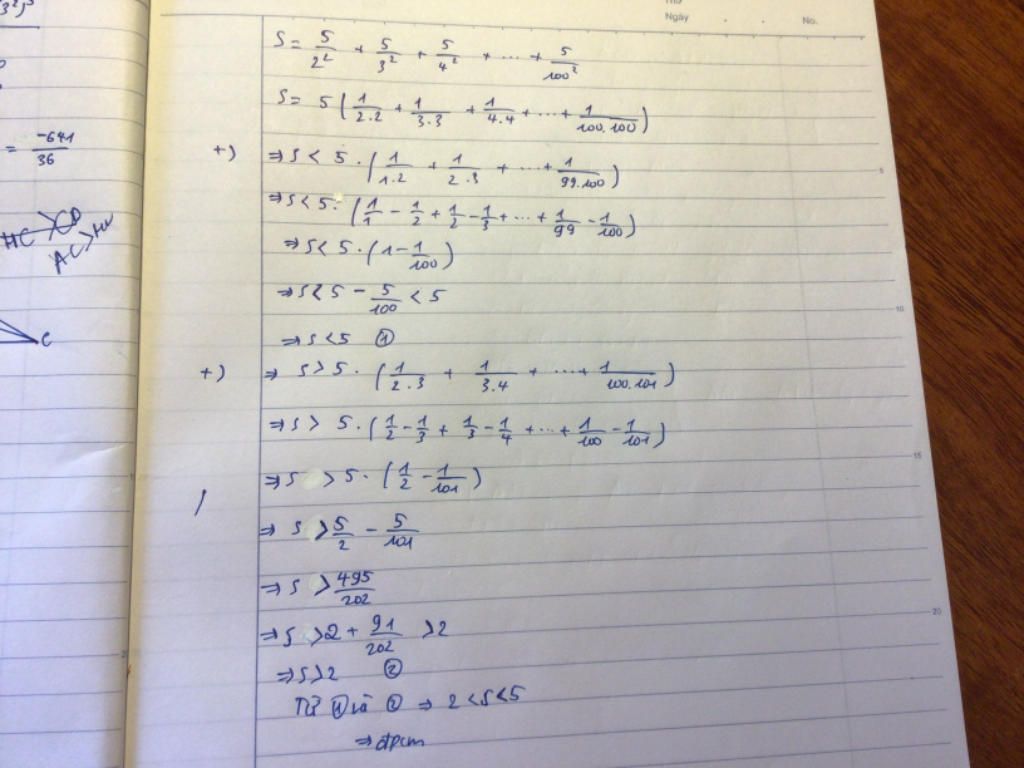 Thứ
Ngày . . No.
S = 5/2² + 5/3² + 5/4² + ... + 5/100²
S = 5 ( 1/2.2 + 1/3.3 + 1/4.4 + ... + 1/100.100 )
+) ⇒ S < 5 . ( 1/1.2 + 1/2.3 + ... + 1/99.100 )
⇒ S < 5. ( 1/1 - 1/2 + 1/2 - 1/3 + ... + 1/99 - 1/100 )
⇒ S < 5 . ( 1 - 1/100 )
⇒ S < 5 - 5/100 < 5
⇒ S < 5 ①
+) ⇒ S > 5 . ( 1/2.3 + 1/3.4 + ... + 1/100.101 )
⇒ S > 5 . ( 1/2 - 1/3 + 1/3 - 1/4 + ... + 1/100 - 1/101 )
⇒ S > 5 . ( 1/2 - 1/101 )
⇒ S > 5/2 - 5/101
⇒ S > 495/202
⇒ S > 2 + 91/202 > 2
⇒ S > 2 ②
Từ ① và ② ⇒ 2 < S < 5
⇒ đpcm
= -641/36
HC > CD
AC > HC
C
5
10
15
20